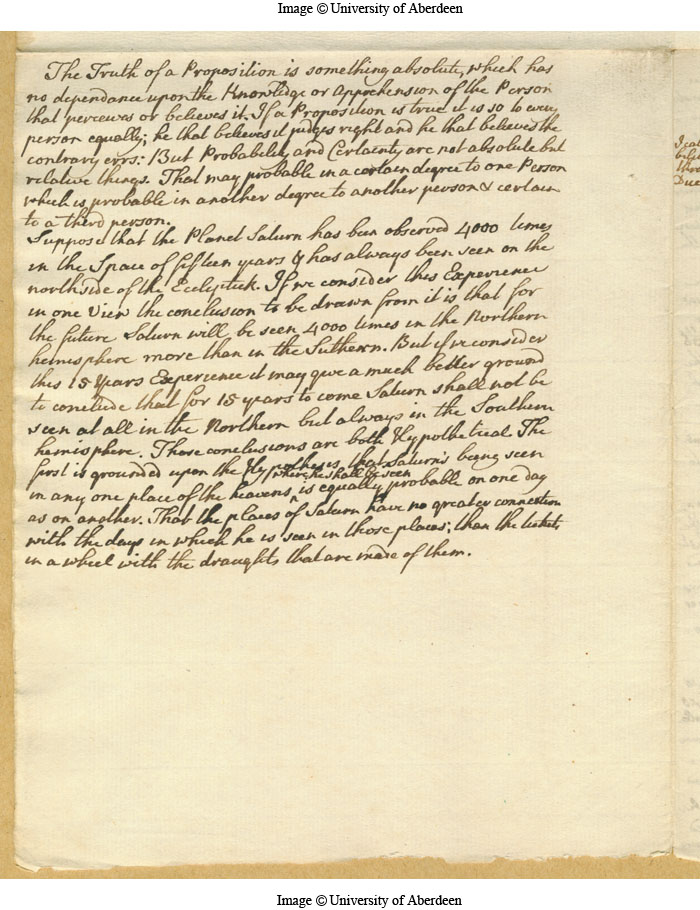 Image © University of Aberdeen
The Truth of a Proposition is something absolute, which has
no dependance upon the Knowledge or Apprehension of the Person
that perceives or believes it. If a Proposition is true it is so to every
person equally; he that believes it judges right and he that believes the
contrary errs: But Probability and Certainty are not absolute but
relative things. That may probable in a certain degree to one Person
which is probable in another degree to another person & certain
to a third person.
Suppose that the Planet Saturn has been observed 4000 times
in the Space of fifteen years & has always been seen on the
northside of the Ecclyptick. If we consider this Experience
in one View the conclusion to be drawn from it is that for
the future Saturn will be seen 4000 times in the Northern
hemisphere more than in the Suthern. But if we consider
this 15 Years Experience it may give a much better ground
to conclude that for 15 years to come Saturn shall not be
seen at all in the Northern but always in the Southern
hemisphere. Those conclusions are both Hypothetical. The
first is grounded upon the Hypothesis that Saturn's being seen
where he shall be seen
in any one place of the heavens is equally probable on one day
as on another. That the places of Saturn have no greater connection
with the days in which he is seen in those places; than the tickets
in a wheel with the draughts that are made of them.
Image © University of Aberdeen